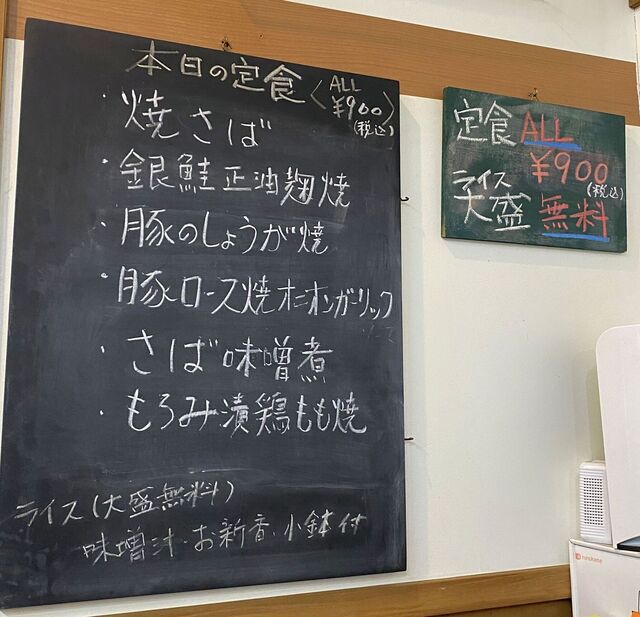 本日の定食〈ALL ¥900 (税込)〉
・焼さば
・銀鮭正油麹焼
・豚のしょうが焼
・豚ロース焼オニオンガーリック
ソース
・さば味噌煮
・もろみ漬鶏もも焼
ライス(大盛無料)
味噌汁・お新香・小鉢付
定食 ALL
¥900
(税込)
ライス
大盛 無料